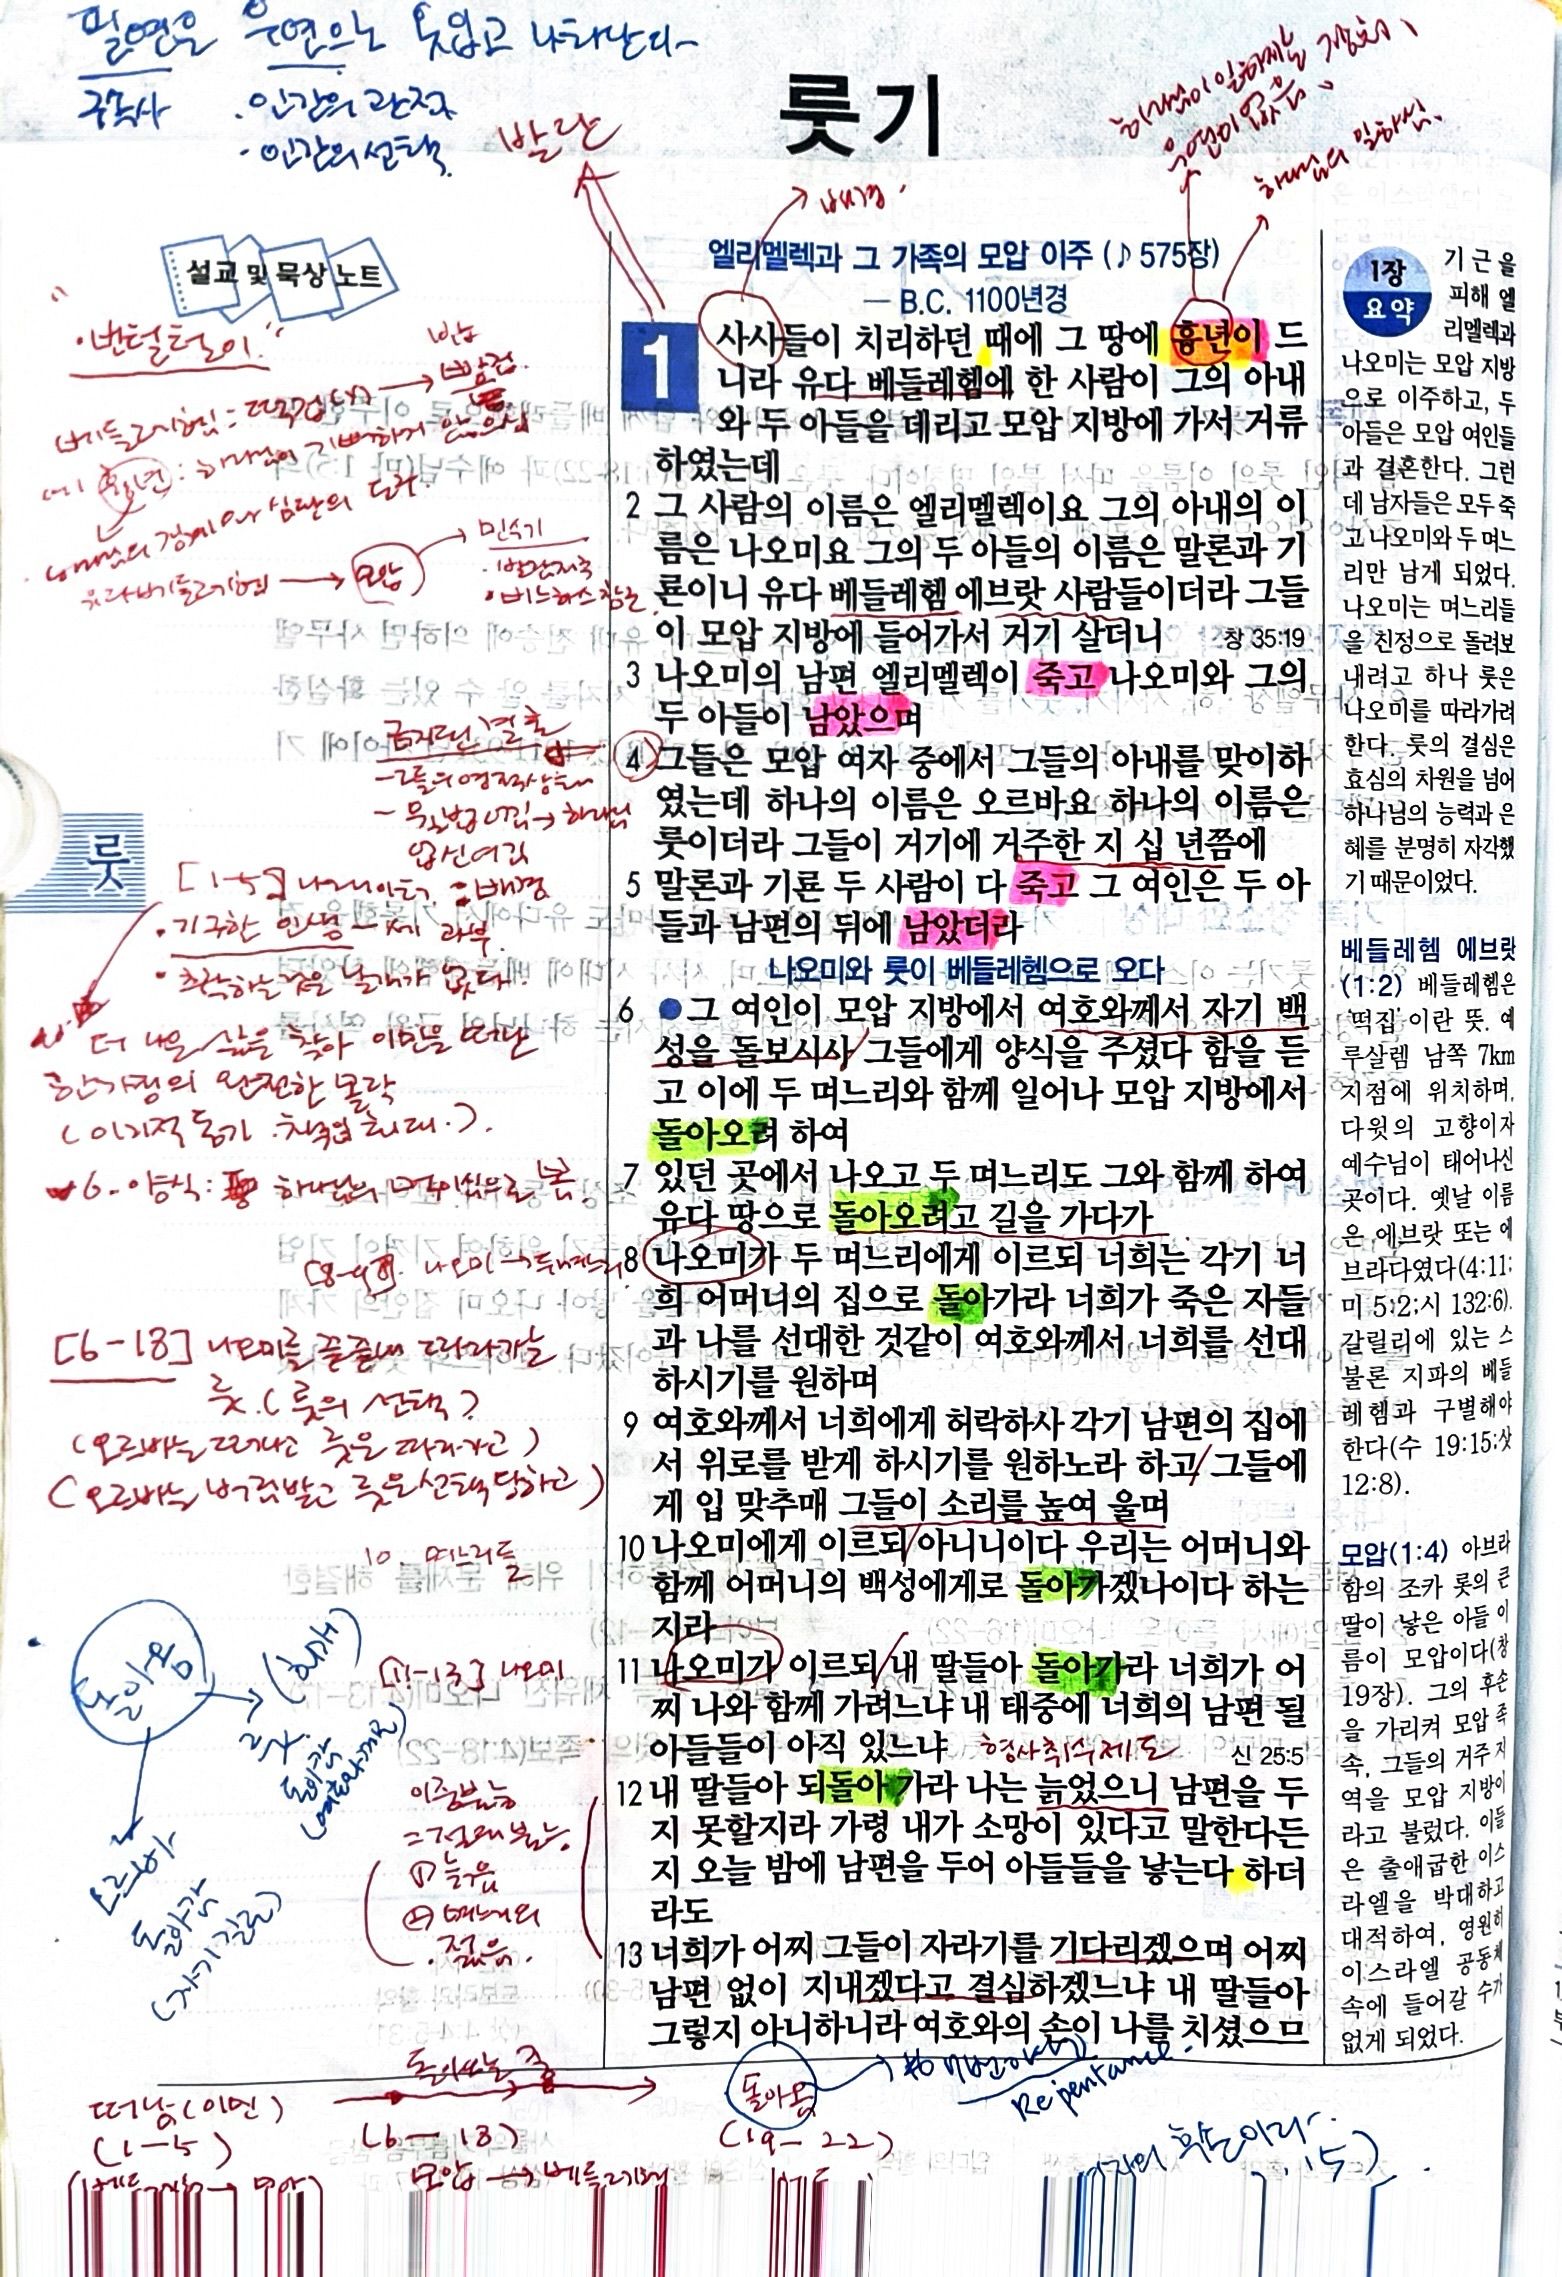 필연은 우연으로 옷입고 나타난다~
구속사
· 인간의 관점
· 인간의 선택
발단
배경.
룻기
하나님이 일하시는
우연이 없음
하나님의 일하심.
설교 및 묵상 노트
엘리멜렉과 그 가족의 모압 이주 (♪ 575장)
— B.C. 1100년경
1 사사들이 치리하던 때에 그 땅에 흉년이 드
니라 유다 베들레헴에 한 사람이 그의 아내
와 두 아들을 데리고 모압 지방에 가서 거류
하였는데
2 그 사람의 이름은 엘리멜렉이요 그의 아내의 이
름은 나오미요 그의 두 아들의 이름은 말론과 기
룐이니 유다 베들레헴 에브랏 사람들이더라 그들
이 모압 지방에 들어가서 거기 살더니 창 35:19
3 나오미의 남편 엘리멜렉이 죽고 나오미와 그의
두 아들이 남았으며
4 그들은 모압 여자 중에서 그들의 아내를 맞이하
였는데 하나의 이름은 오르바요 하나의 이름은
룻이더라 그들이 거기에 거주한 지 십 년쯤에
5 말론과 기룐 두 사람이 다 죽고 그 여인은 두 아
들과 남편의 뒤에 남았더라
나오미와 룻이 베들레헴으로 오다
6 ●그 여인이 모압 지방에서 여호와께서 자기 백
성을 돌보시사 그들에게 양식을 주셨다 함을 듣
고 이에 두 며느리와 함께 일어나 모압 지방에서
돌아오려 하여
7 있던 곳에서 나오고 두 며느리도 그와 함께 하여
유다 땅으로 돌아오려고 길을 가다가
8 나오미가 두 며느리에게 이르되 너희는 각기 너
희 어머니의 집으로 돌아가라 너희가 죽은 자들
과 나를 선대한 것같이 여호와께서 너희를 선대
하시기를 원하며
9 여호와께서 너희에게 허락하사 각기 남편의 집에
서 위로를 받게 하시기를 원하노라 하고 그들에
게 입 맞추매 그들이 소리를 높여 울며
10 나오미에게 이르되 아니니이다 우리는 어머니와
함께 어머니의 백성에게로 돌아가겠나이다 하는
지라
11 나오미가 이르되 내 딸들아 돌아가라 너희가 어
찌 나와 함께 가려느냐 내 태중에 너희의 남편 될
아들들이 아직 있느냐 형사취수제도 신 25:5
12 내 딸들아 되돌아 가라 나는 늙었으니 남편을 두
지 못할지라 가령 내가 소망이 있다고 말한다든
지 오늘 밤에 남편을 두어 아들들을 낳는다 하더
라도
13 너희가 어찌 그들이 자라기를 기다리겠으며 어찌
남편 없이 지내겠다고 결심하겠느냐 내 딸들아
그렇지 아니하니라 여호와의 손이 나를 치셨으므
1장
요약
기근을
피해 엘
리멜렉과
나오미는 모압 지방
으로 이주하고, 두
아들은 모압 여인들
과 결혼한다. 그런
데 남자들은 모두 죽
고 나오미와 두 며느
리만 남게 되었다.
나오미는 며느리들
을 친정으로 돌려보
내려고 하나 룻은
나오미를 따라가려
한다. 룻의 결심은
효심의 차원을 넘어
하나님의 능력과 은
혜를 분명히 자각했
기 때문이었다.
베들레헴 에브랏
(1:2) 베들레헴은
'떡집'이란 뜻. 예
루살렘 남쪽 7km
지점에 위치하며,
다윗의 고향이자
예수님이 태어나신
곳이다. 옛날 이름
은 에브랏 또는 에
브라다였다(4:11;
미 5:2;시 132:6).
갈릴리에 있는 스
불론 지파의 베들
레헴과 구별해야
한다(수 19:15;삿
12:8).
모압(1:4) 아브라
함의 조카 롯의 큰
딸이 낳은 아들 이
름이 모압이다(창
19장). 그의 후손
을 가리켜 모압 족
속, 그들의 거주 지
역을 모압 지방이
라고 불렀다. 이들
은 출애굽한 이스
라엘을 박대하고
대적하여, 영원히
이스라엘 공동체
속에 들어갈 수가
없게 되었다.
룻
베들레헴: 떡집
흉년: 하나님이 기뻐하지 않으심
하나님의 징계와 심판의 도구.
유다 베들레헴 → 모압
민수기
· 발람
· 비느하스
금지된 결혼
- 그들의 영적상태
하나님
업신여김
[1-5] 나레이터. :배경
· 기구한 인생 - 세 과부.
· 추락하는 것은 날개가 없다.
더 나은 삶을 찾아 이민을 떠난
한 가정의 완전한 몰락
(이기적 동기
6. 양식: 하나님의
[8-9] 나오미 → 두 며느리
[6-18] 나오미를 끝끝내 따라가는
룻. (룻의 선택)
(오르바는 떠나고 룻은 따라가고)
(오르바는 버림받고 룻은 선택 당하고)
10 며느리들
[11-13] 나오미
돌이킴
(회개)
룻.
돌아감
(여호와께로)
오르바
돌아감
(자기 길로)
이중불능
=절대불능.
① 늙음
② 며느리의
젊음.
떠남(이민)
(1-5)
(베들레헴 → 모압)
돌아오는 중
(6-18)
모압 → 베들레헴
돌아옴
(19-22)
Repentance.